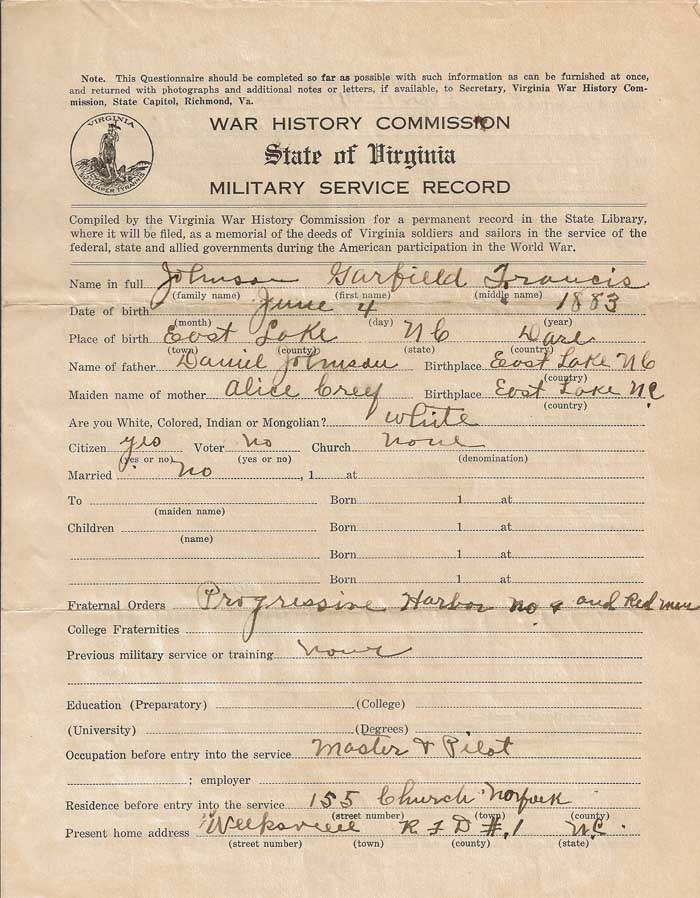 Note. This Questionnaire should be completed so far as possible with such information as can be furnished at once,
and returned with photographs and additional notes or letters, if available, to Secretary, Virginia War History Com-
mission, State Capitol, Richmond, Va.
VIRGINIA
SIC SEMPER TYRANNIS
WAR HISTORY COMMISSION
State of Virginia
MILITARY SERVICE RECORD
Compiled by the Virginia War History Commission for a permanent record in the State Library,
where it will be filed, as a memorial of the deeds of Virginia soldiers and sailors in the service of the
federal, state and allied governments during the American participation in the World War.
Name in full Johnson Garfield Francis
(family name) (first name) (middle name)
Date of birth June 4 1883
(month) (day) (year)
Place of birth East Lake NC Dare
(town) (county) (state) (country)
Name of father Daniel Johnson Birthplace East Lake NC
(country)
Maiden name of mother Alice Creef Birthplace East Lake N.C
(country)
Are you White, Colored, Indian or Mongolian? White
Citizen yes Voter no Church none
(yes or no) (yes or no) (denomination)
Married no , 1 at
To Born 1 at
(maiden name)
Children Born 1 at
(name)
Born 1 at
Born 1 at
Fraternal Orders Progressive Harbor no 4 and Red men
College Fraternities
Previous military service or training none
Education (Preparatory) (College)
(University) (Degrees)
Occupation before entry into the service Master & Pilot
; employer
Residence before entry into the service 155 Church Norfolk
(street number) (town) (county)
Present home address Weeksville R F D #.1 N.C.
(street number) (town) (county) (state)